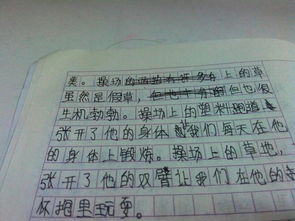 类。操场的上的草
虽然是假草，但也很
生机勃勃。操场上的塑料跑道
张开了他的身体我们每天在他
的身体上锻炼。操场上的草地，
张开了他的双臂让我们在他的
怀抱里玩耍。